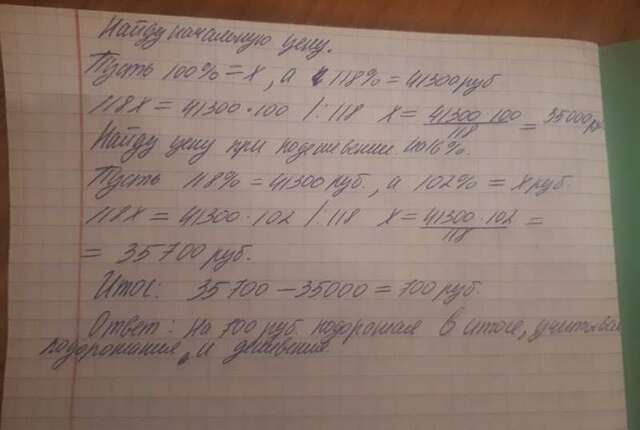 Найду начальную цену.
Пусть 100% = x, а 118% = 41300 руб
118x = 41300 · 100 /: 118 x = 41300 · 100 / 118 = 35000 р
Найду цену при подешевении на 16%.
Пусть 118% = 41300 руб., а 102% = x руб.
118x = 41300 · 102 /: 118 x = 41300 · 102 / 118 =
= 35 700 руб.
Итог: 35 700 – 35000 = 700 руб.
Ответ: на 700 руб. подорожал в итоге,
подорожания и